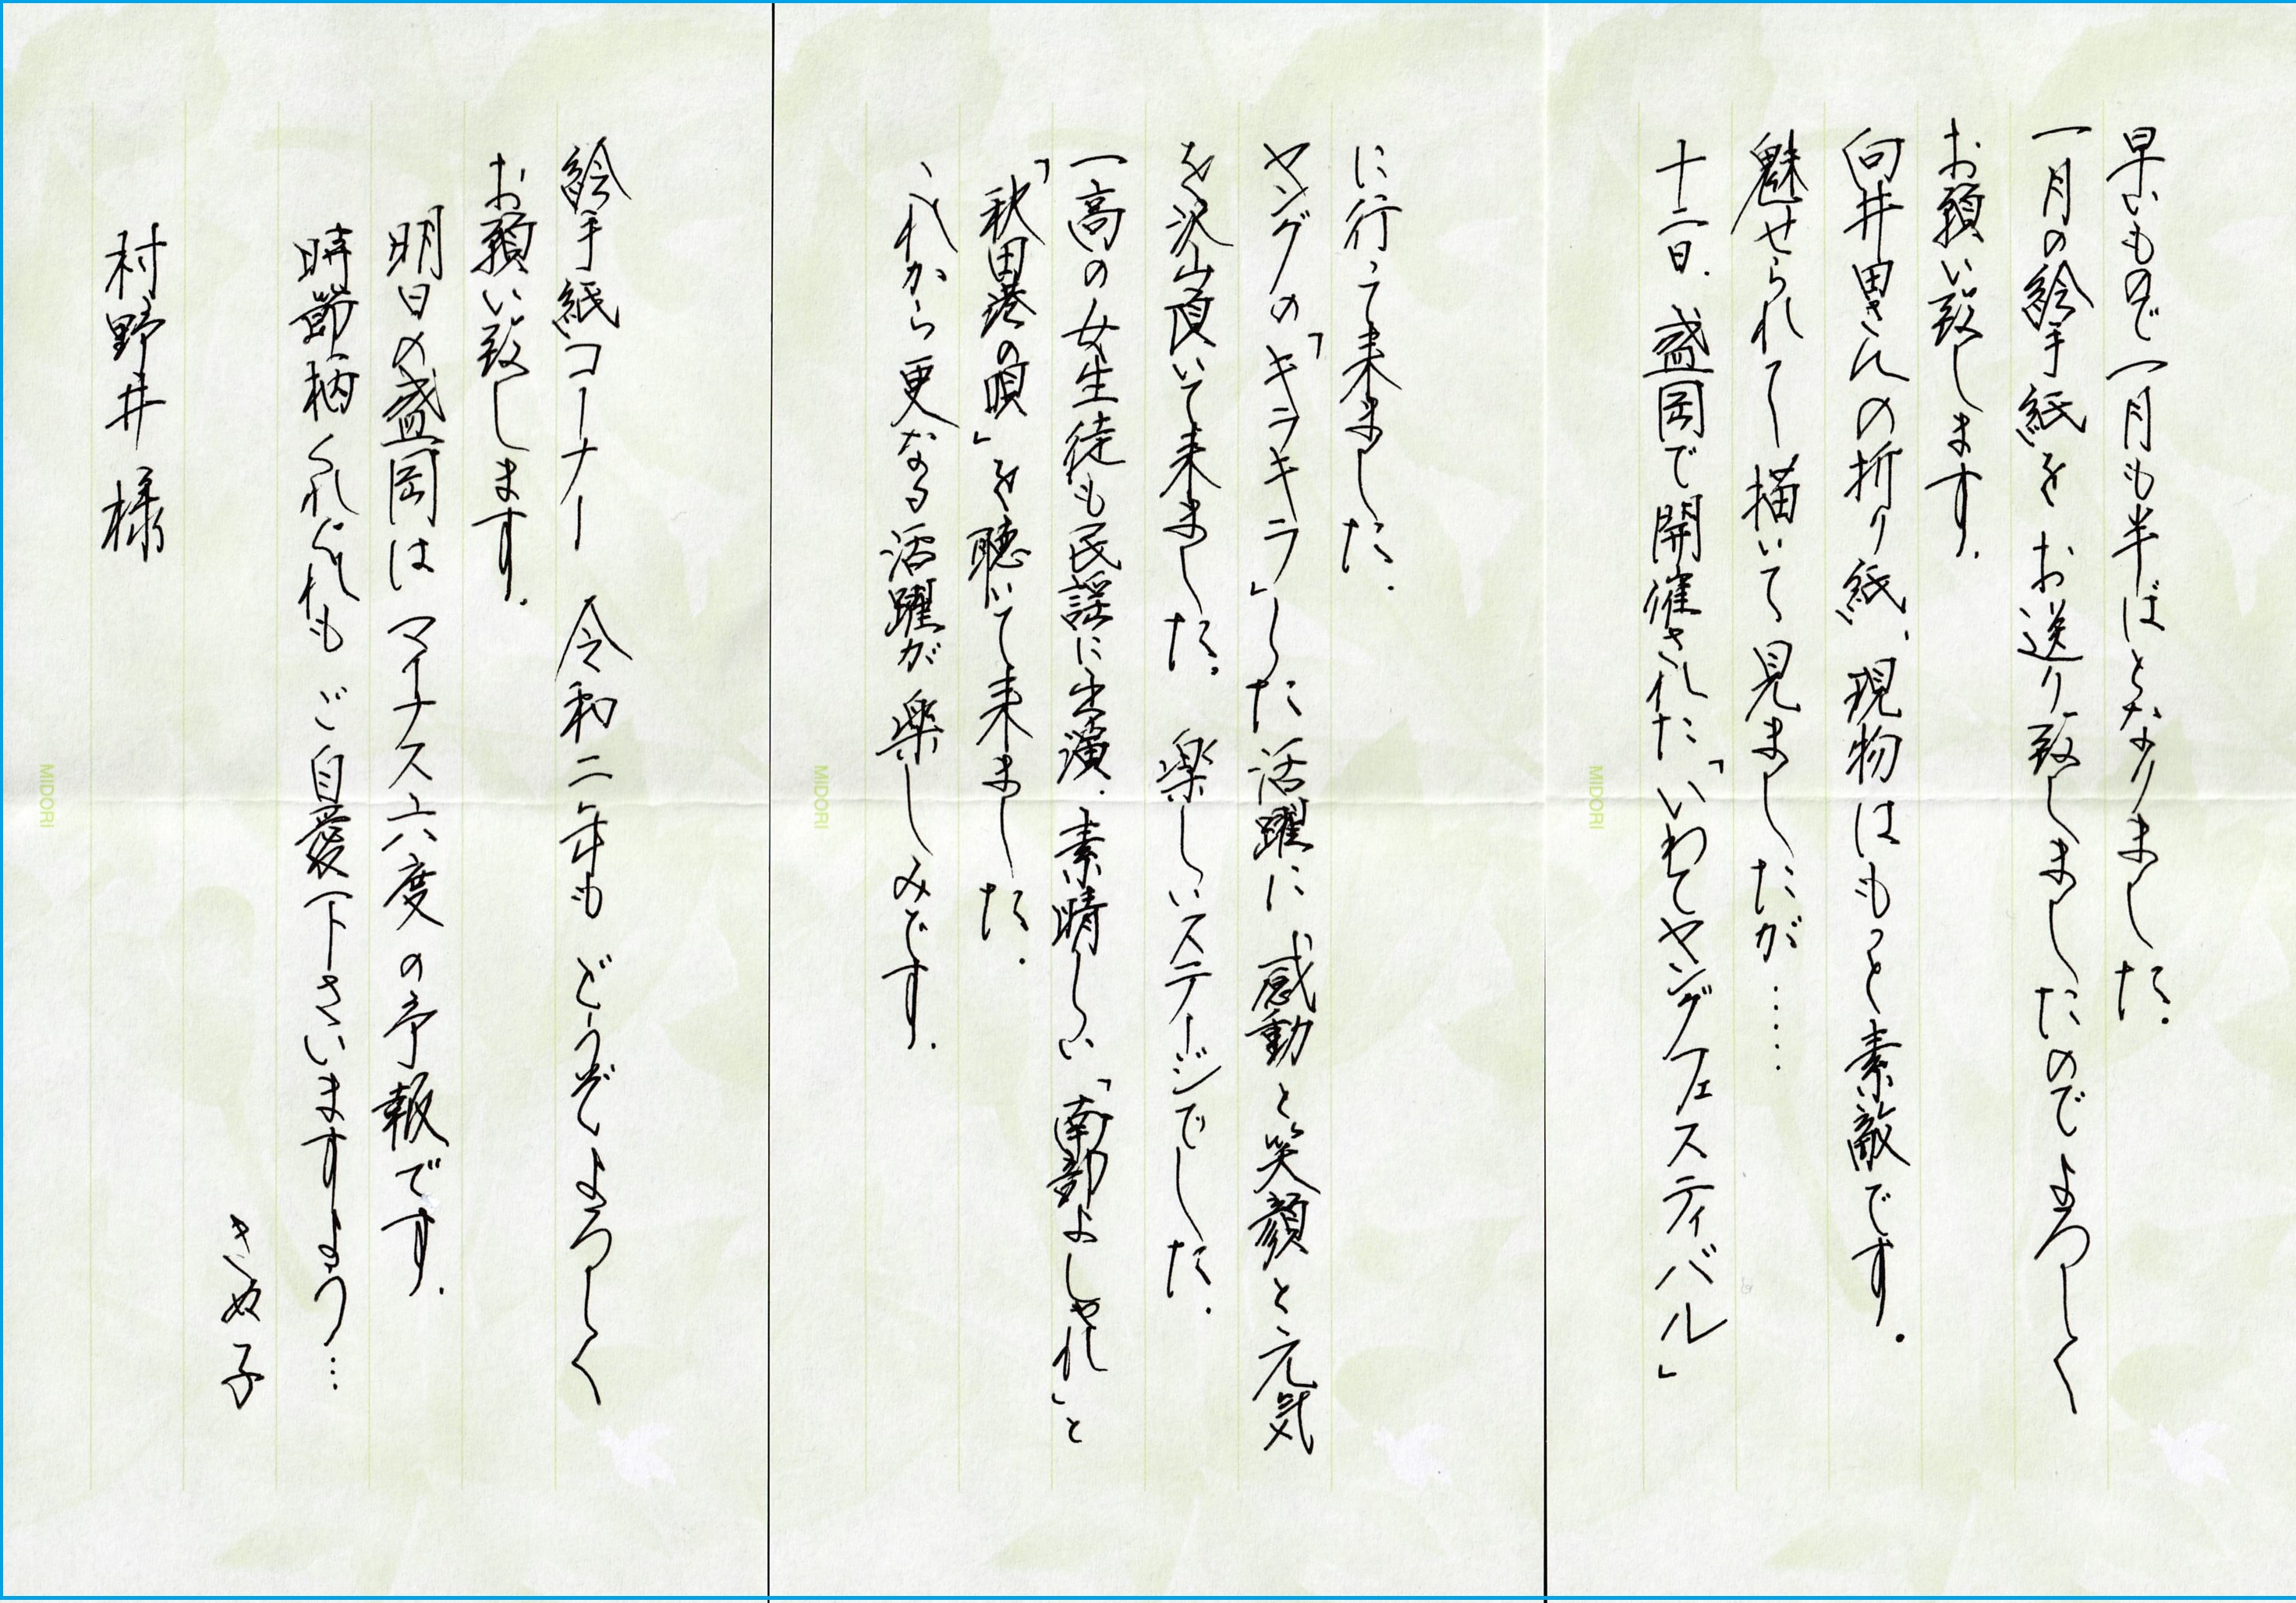 早いもので一月も半ばとなりました.
一月の絵手紙をお送り致しましたのでよろしく
お願い致します.
向井田さんの折り紙、現物はもっと素敵です.
魅せられて描いて見ましたが……
十二日.盛岡で開催された「いわてヤングフェスティバル」
MIDORI
に行って来ました.
ヤングの「キラキラ」した活躍に感動と笑顔と元気
を沢山頂いて来ました.楽しいステージでした.
一高の女生徒も民謡に出演.素晴しい「南部よしゃれ」と
「秋田港の唄」を聴いて来ました.
これから更なる活躍が楽しみです.
MIDORI
絵手紙コーナー 令和二年もどうぞよろしく
お願い致します.
明日の盛岡はマイナス六度の予報です.
時節柄くれぐれもご自愛下さいますよう…
きぬ子
村野井様
MIDORI